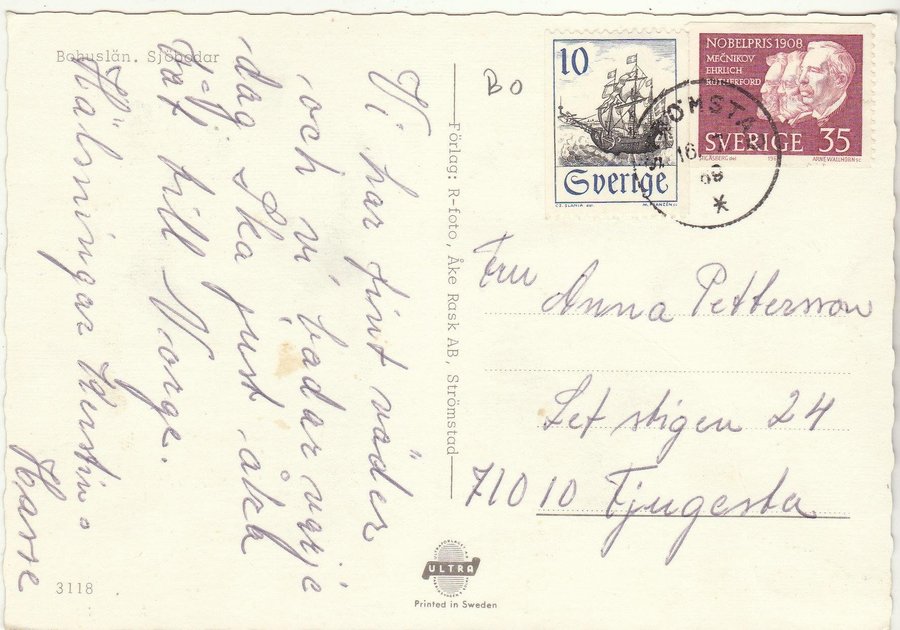 Bohuslän. Sjöbodar
Vi har fint väder
och vi badar varje
dag. Ska just åka
båt till Norge.
Hälsningar Kerstin o
Hasse
3118
Förlag: R-foto, Åke Rask AB, Strömstad
ULTRA
Printed in Sweden
BO
10
Sverige
CZ. SLANIA del.
M. FRANZÉN sc.
NOBELPRIS 1908
MEČNIKOV
EHRLICH
RUTHERFORD
SVERIGE 35
ARNE WALLHORN SC
STRÖMSTAD
16
Fru Anna Pettersson
Letstigen 24
71010 Fjugesta